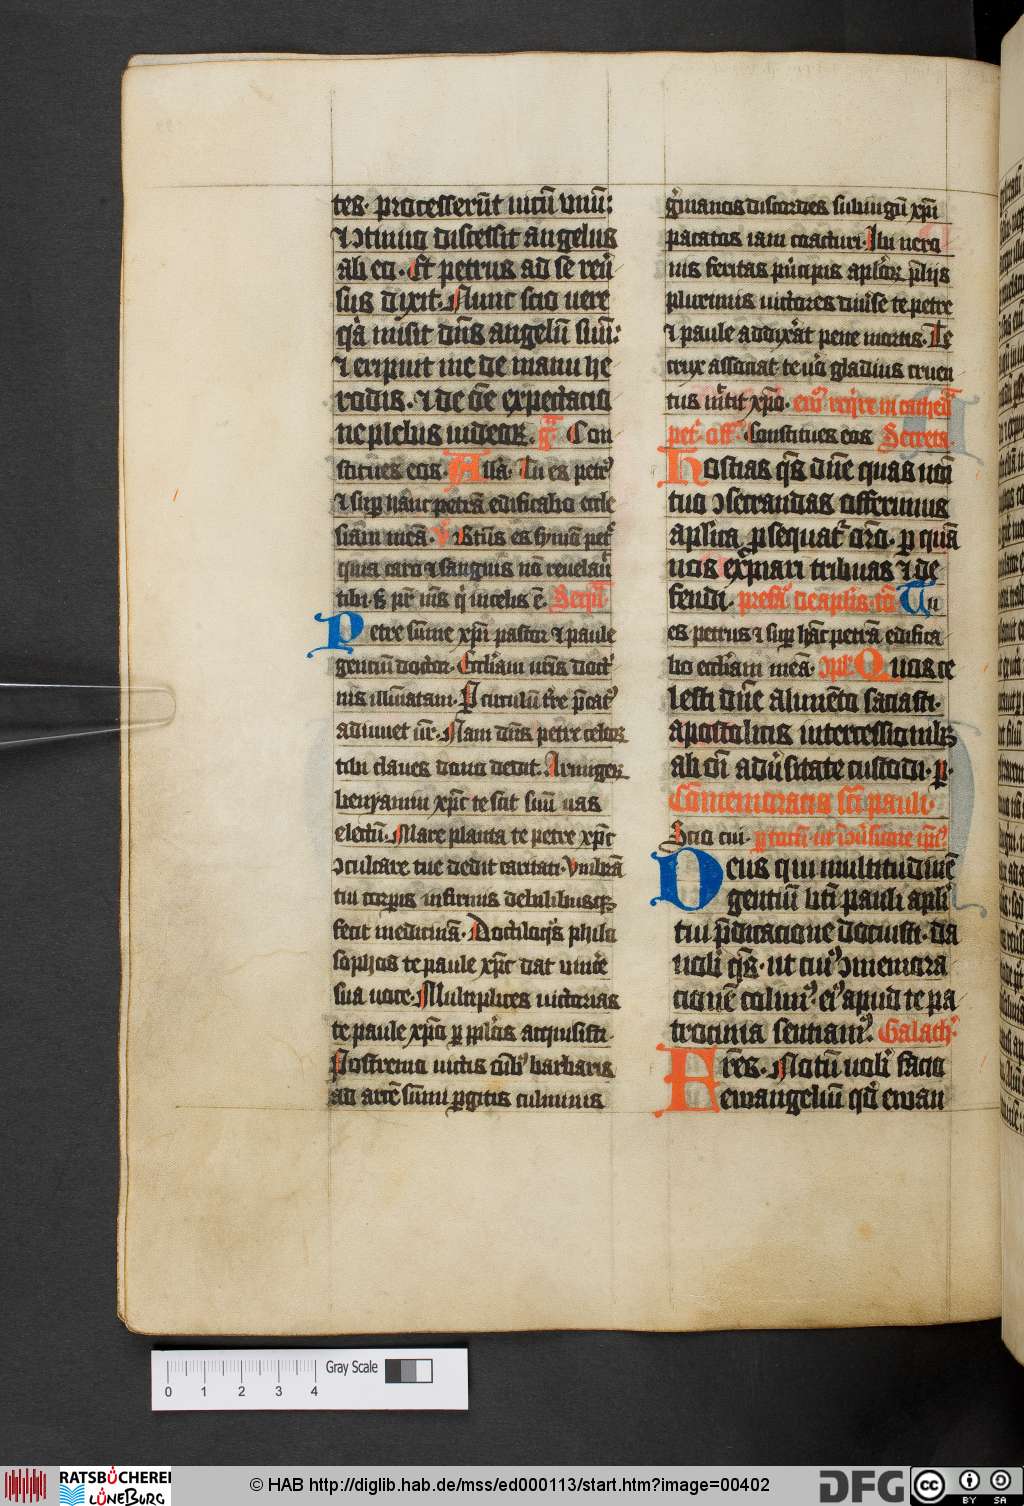 tes· processerūt uicū vnū:
⁊ ↄtinuo discessit angelus
ab eo· Et petrus ad se reū
sus dixit· Nunc scio uere
qa misit dn̄s angelū suū:
⁊ eripuit me de manu he
rodis· ⁊ de oē expectacio
ne plebis iudeoꝝ· Con
stitues eos· Alla· Tu es petꝰ
⁊ suꝑ hanc petrā edificabo eccle
siām meā· V Btūs es symō pet
quia caro ⁊ sanguis nō reuelauit
tibi s pr̄ m̄s q̄ in celis ē·
Petre sūme xp̄i pastor ⁊ paule
gentiū doctor· Eccliam docti
nis illūatam· ꝑ circulū tre p̄catꝰ
adiuuet ūr· Nam dn̄s petre celoꝝ
tibi claues dono dedit· Armiger
beniamin xp̄c te scit suū uas
electū· Mare planta te petre xp̄c
ↄculcare tue dedit caritati· Vmbrā
tui corꝑis infirmis debilibusqꝫ
fecit medicinā· Dochiloqs philo
sophos te paule xp̄c dat uincere
sua uoce· Multiplices uictorias
te paule xp̄o ꝑ pplos acquisisti·
Postremo uictis oīb barbaris
ad arcē sūmi ꝑgitis culminis
gmanos discordes sub iugū xp̄i
pacatos iam coacturi· Ibi nero
nis feritas pincipis aploꝝ p̄liis
plurimis uictores diuse te petre
⁊ paule addixat pene mortis· Te
crux associat te uo gladius cruen
tus mittit xp̄o· require in cathedra
pet· off· Constitues eos Secreta·
Hostias qs dn̄e quas noī
tuo ↄsecrandas offerimus
aplica ꝓsequat oro· ꝑ quā
nos expiari tribuas ⁊ de
fendi· prefa de aplis Tu
es petrus ⁊ suꝑ hāc petrā edifica
bo eccliam meā· Quos ce
lesti dn̄e alimēto saciasti·
apostolicis intercessionibꝫ
ab oī adusitate custodi· ꝑ·
Cōmemoracio sc̄i pauli·
Scio cui·
Deus qui multitudinē
gentiū bti pauli apli
tui p̄dicacione docuisti· da
nobis qs· ut cuiꝰ ↄmemora
cionē colimꝰ eiꝰ apud te pa
trocinia senciamꝰ· Galach
Fres· Notū uob facio
ewangeliū qd ewan
Gray Scale
0 1 2 3 4
RATSBÜCHEREI
LÜNEBURG
© HAB http://diglib.hab.de/mss/ed000113/start.htm?image=00402
DFG
cc BY SA